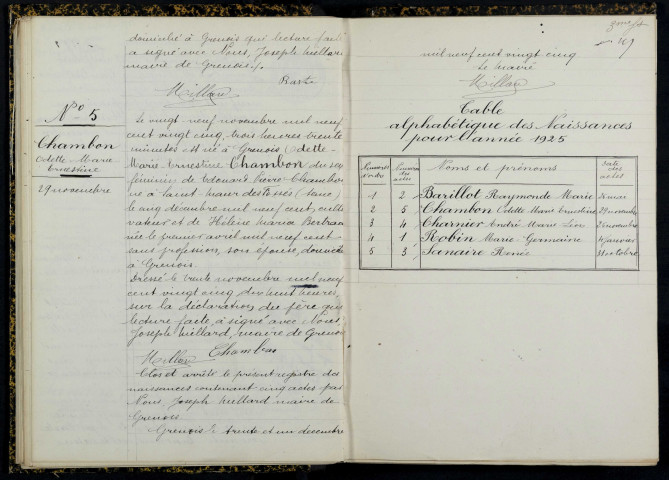 domicilié à Grenois qui lecture faite
a signé avec Nous, Joseph Millard
maire de Grenois.
Millard
N° 5
Chambon
Odette Marie
Ernestine
29 novembre
Le vingt neuf novembre mil neuf
cent vingt cinq, trois heures trente
minutes est née à Grenois Odette
Marie Ernestine Chambon du sexe
féminin de Edouard Pierre Chambon
né à Saint Maur des Fossés
le cinq décembre mil neuf cent, culti
vateur et de Hélène Maria Bertrand
née le premier avril mil neuf cent
sans profession, son épouse, domiciliés
à Grenois.
Dressé le trente novembre mil neuf
cent vingt cinq dix huit heures,
sur la déclaration du père qui
lecture faite, a signé avec Nous
Joseph Millard, maire de Grenois
Millard Chambon
Clos et arrêté le présent registre des
naissances contenant cinq actes par
Nous Joseph Millard maire de
Grenois
Grenois le trente et un décembre
169
mil neuf cent vingt cinq
Le maire
Millard
Table
alphabétique des Naissances
pour l'année 1925
Numéros d'ordre Numéros des actes Noms et prénoms Date des actes
1 2 Barillot Raymonde Marie
2 5 Chambon Odette Marie Ernestine 29 novembre
3 4 Charnier André Marie Léon novembre
4 1 Robin Marie Germaine janvier
5 3 Renée octobre